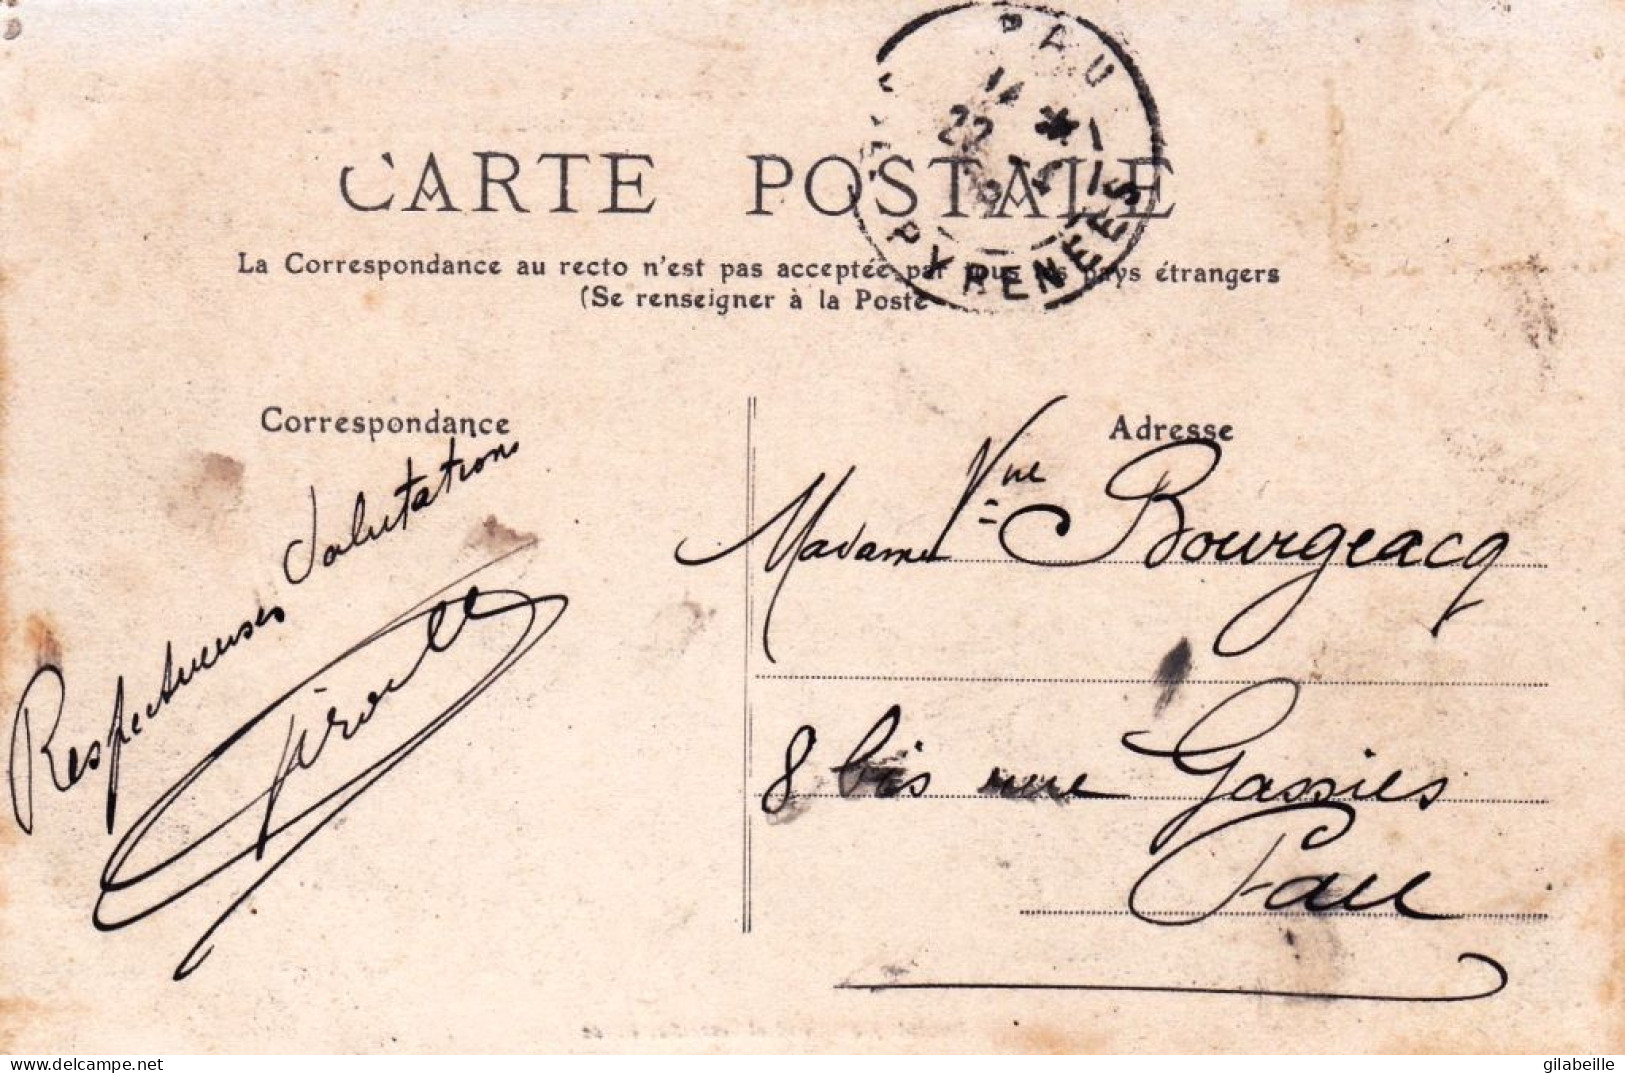 PAU
22
PYRENEES
CARTE POSTALE
La Correspondance au recto n'est pas acceptée par tous les pays étrangers
(Se renseigner à la Poste
Correspondance
Respectueuses Salutations
Adresse
Madame Vve Bourgeacq
8 bis rue Gassies
Pau
www.delcampe.net
gilabeille